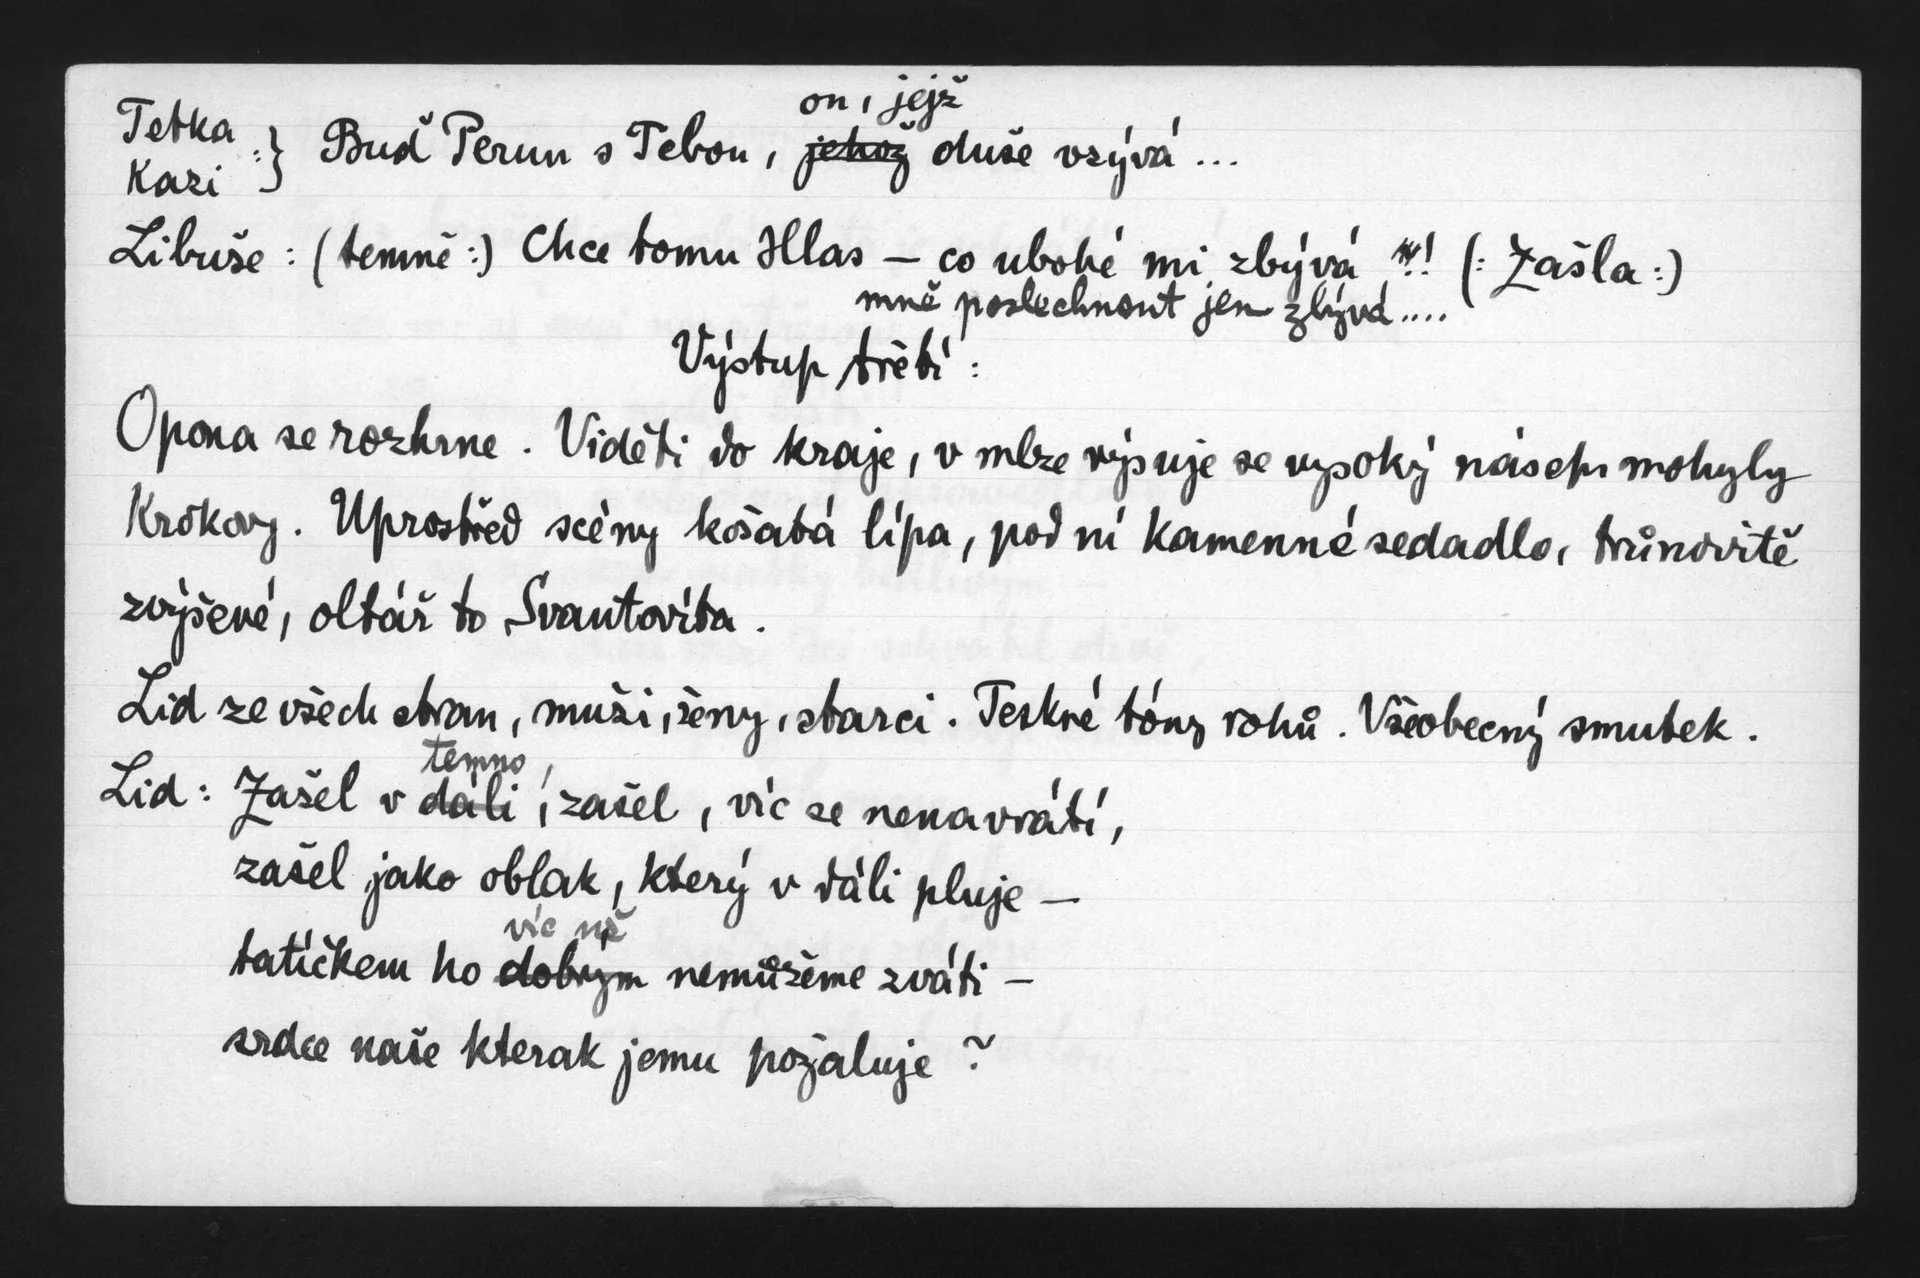 on, jejž
Tetka
Kazi :} Buď Perun s Tebou, jehož duše vzývá ...
Libuše : (temně :) Chce tomu Hlas – co ubohé mi zbývá ?! (: Zašla :)
mně poslechnout jen zbývá ....
Výstup třetí :
Opona se rozhrne . Viděti do kraje, v mlze výpsuje se vysoký násep mohyly
Krokovy . Uprostřed scény košatá lípa, pod ní kamenné sedadlo, trůnovitě
zvýšené, oltář to Svantovíta .
Lid ze všech stran, muži, ženy, starci . Teskné tóny rohů . Všeobecný smutek .
temno,
Lid : Zašel v dáli, zašel, víc se nenavrátí,
zašel jako oblak, který v dáli pluje –
víc už
tatíčkem ho dobrým nemůžeme zváti –
srdce naše kterak jemu požaluje ?